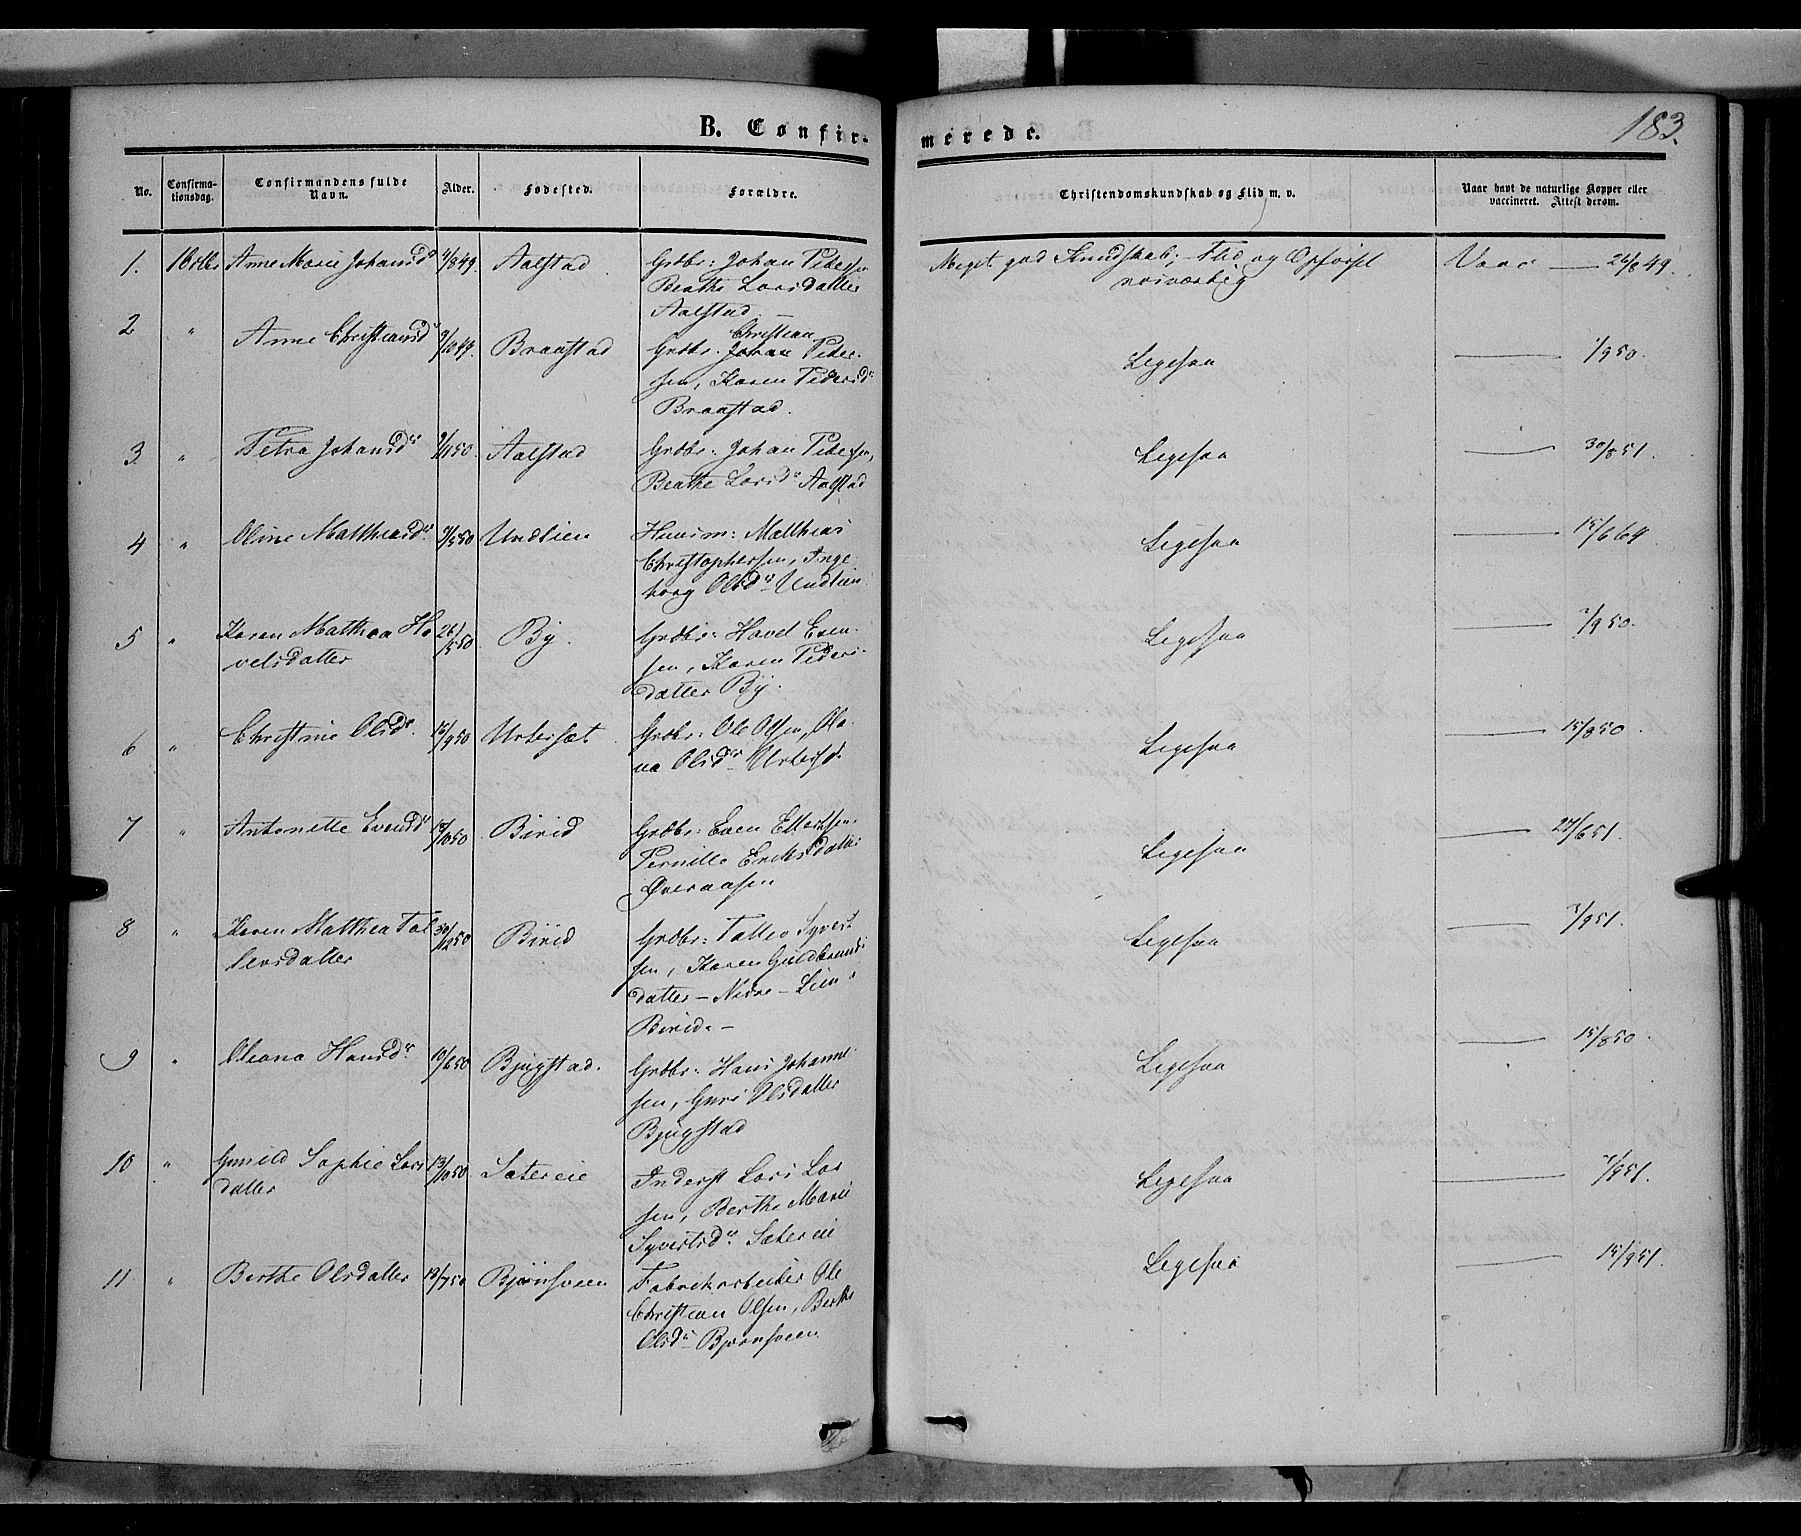 B. Confir-
merede.
183.
No.
Confirma-
tionsdag.
Confirmandens fulde
Navn.
Alder.
Fødested.
Forældre.
Christendomskundskab og Flid m. v.
Naar havt de naturlige Kopper eller
vaccineret. Attest derom.
1. 16 Anne Marie Johansdr 4/8 49. Aalstad. Grdbr: Johan Pedersen
Berthe Larsdatter
Aalstad
Meget god Kundskab; Flid og Opførsel
rosværdig
Vacc — 26/8 49.
2 " Anne Christiansdr 9/10 49. Braastad Grdbr. Christian Peder-
sen, Karen Pedersdr
Braastad.
Ligesaa — 1/9 50.
3. " Petra Johansdr 9/11 50. Aalstad Grdbr. Johan Pedersen,
Beathe Larsdr Aalstad
Ligesaa — 30/8 51.
4 " Oline Mathiasdr. 9/5 50 Undlien Huusm: Matthias
Christophersen, Inge-
borg Olsdr Undlien
Ligesaa — 15/6 64
5 " Karen Mathea Ho-
velsdatter 26/5 50. By. Grdbr: Hovel Even-
sen, Karen Peders-
datter By.
Ligesaa — 7/9 50.
6 " Christine Olsdr. 16/9 50 Urterset Grdbr: Ole Olsen, Ola-
va Olsdr Urterset.
Ligesaa — 15/8 50.
7 " Antonette Evensdr 18/10 50 Birid Grdbr: Even Ellertsen.
Pernille Eriksdatter
Øveraasen
Ligesaa — 27/6 51.
8 " Karen Matthea Tol-
levsdatter 30/12 50 Birid Grdbr: Tollev Syvert-
sen, Karen Guldbrands-
datter — Nedre — Lien
Birid. —
Ligesaa — 7/9 51.
9 " Oleana Hansdr 19/6 50 Bjugstad. Grdbr: Hans Johanne-
sen, Guri Olsdatter
Bjugstad
Ligesaa — 15/8 50.
10 " Gunild Sophie Lars-
datter 13/10 50 Sætereie Inderst Lars Lar-
sen, Berthe Marie
Syvertsdr Sætereie
Ligesaa — 7/9 51.
11 " Berthe Olsdatter 19/7 50 Bjørnsveen Fabrikarbeider Ole
Christian Olsen, Berthe
Olsdr Bjørnsveen
Ligesaa — 15/9 51.